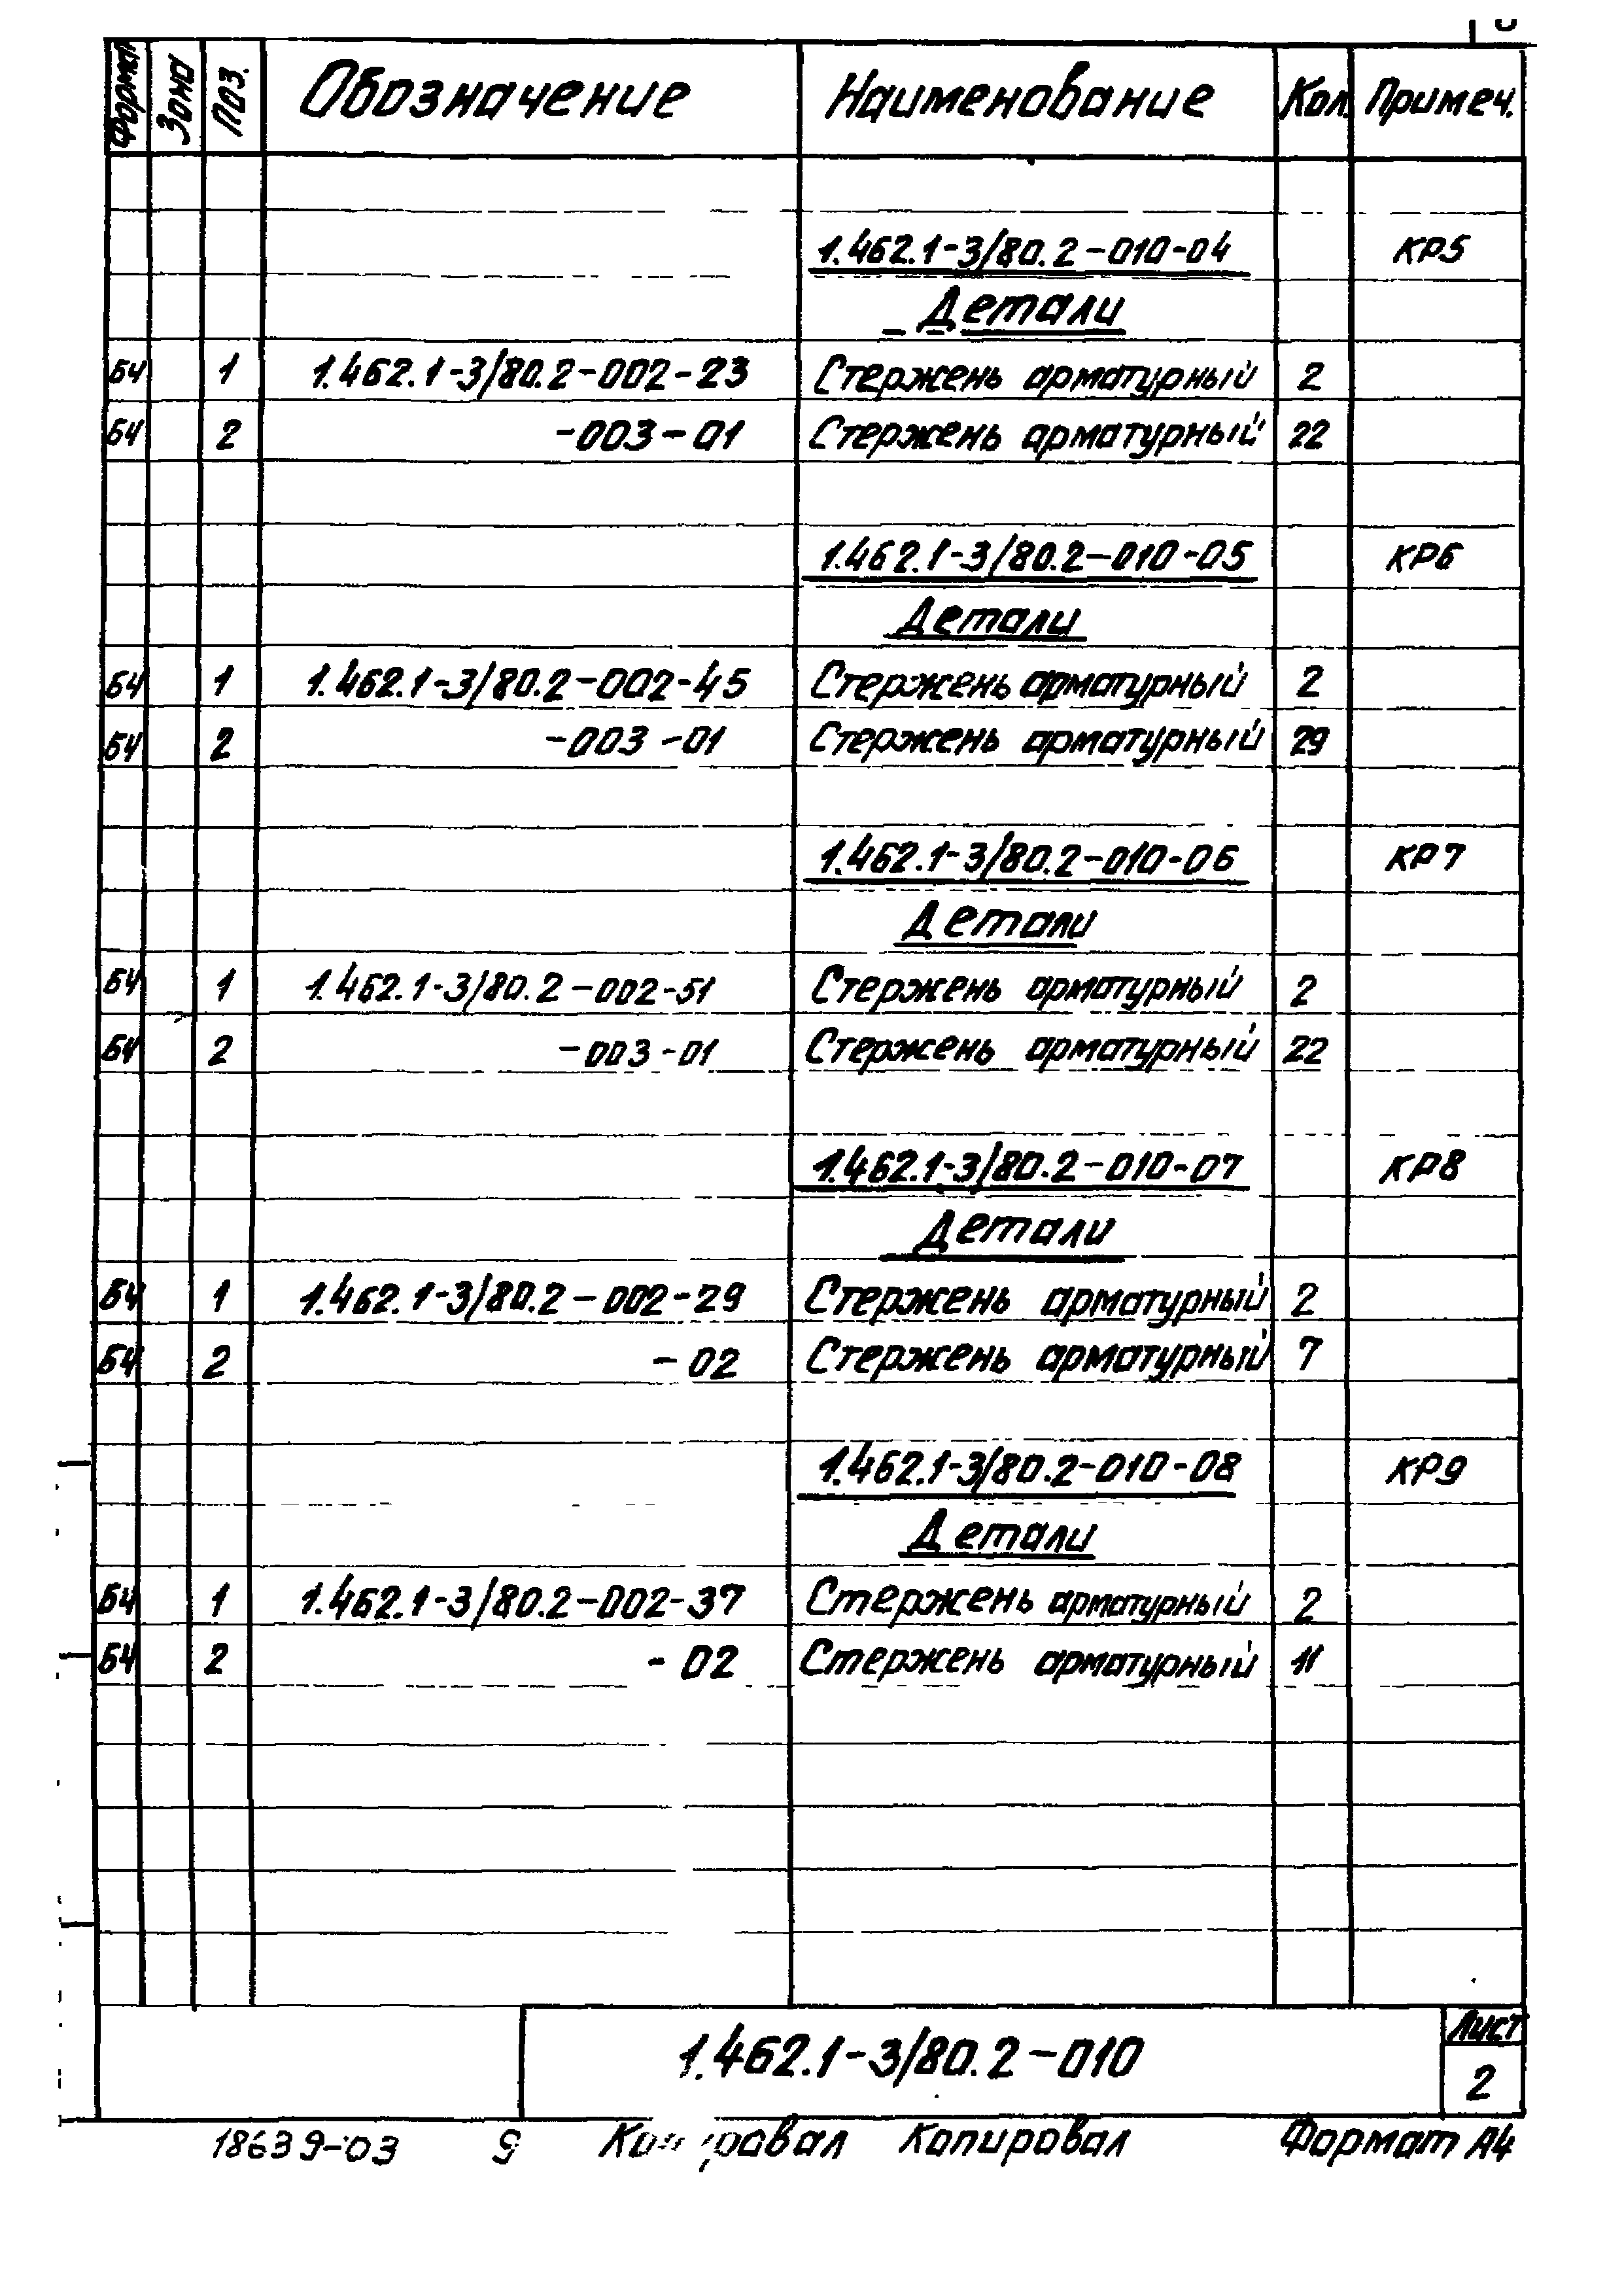 Формат Зона Поз. Обозначение Наименование Кол. Примеч.
1.462.1-3/80.2-010-04 КР5
Детали
БЧ 1 1.462.1-3/80.2-002-23 Стержень арматурный 2
БЧ 2 -003-01 Стержень арматурный 22
1.462.1-3/80.2-010-05 КР6
Детали
БЧ 1 1.462.1-3/80.2-002-45 Стержень арматурный 2
БЧ 2 -003-01 Стержень арматурный 29
1.462.1-3/80.2-010-06 КР7
Детали
БЧ 1 1.462.1-3/80.2-002-51 Стержень арматурный 2
БЧ 2 -003-01 Стержень арматурный 22
1.462.1-3/80.2-010-07 КР8
Детали
БЧ 1 1.462.1-3/80.2-002-29 Стержень арматурный 2
БЧ 2 -02 Стержень арматурный 7
1.462.1-3/80.2-010-08 КР9
Детали
БЧ 1 1.462.1-3/80.2-002-37 Стержень арматурный 2
БЧ 2 -02 Стержень арматурный 11
1.462.1-3/80.2-010
Лист
2
18639-03 9 Копировал Копировал Формат А4